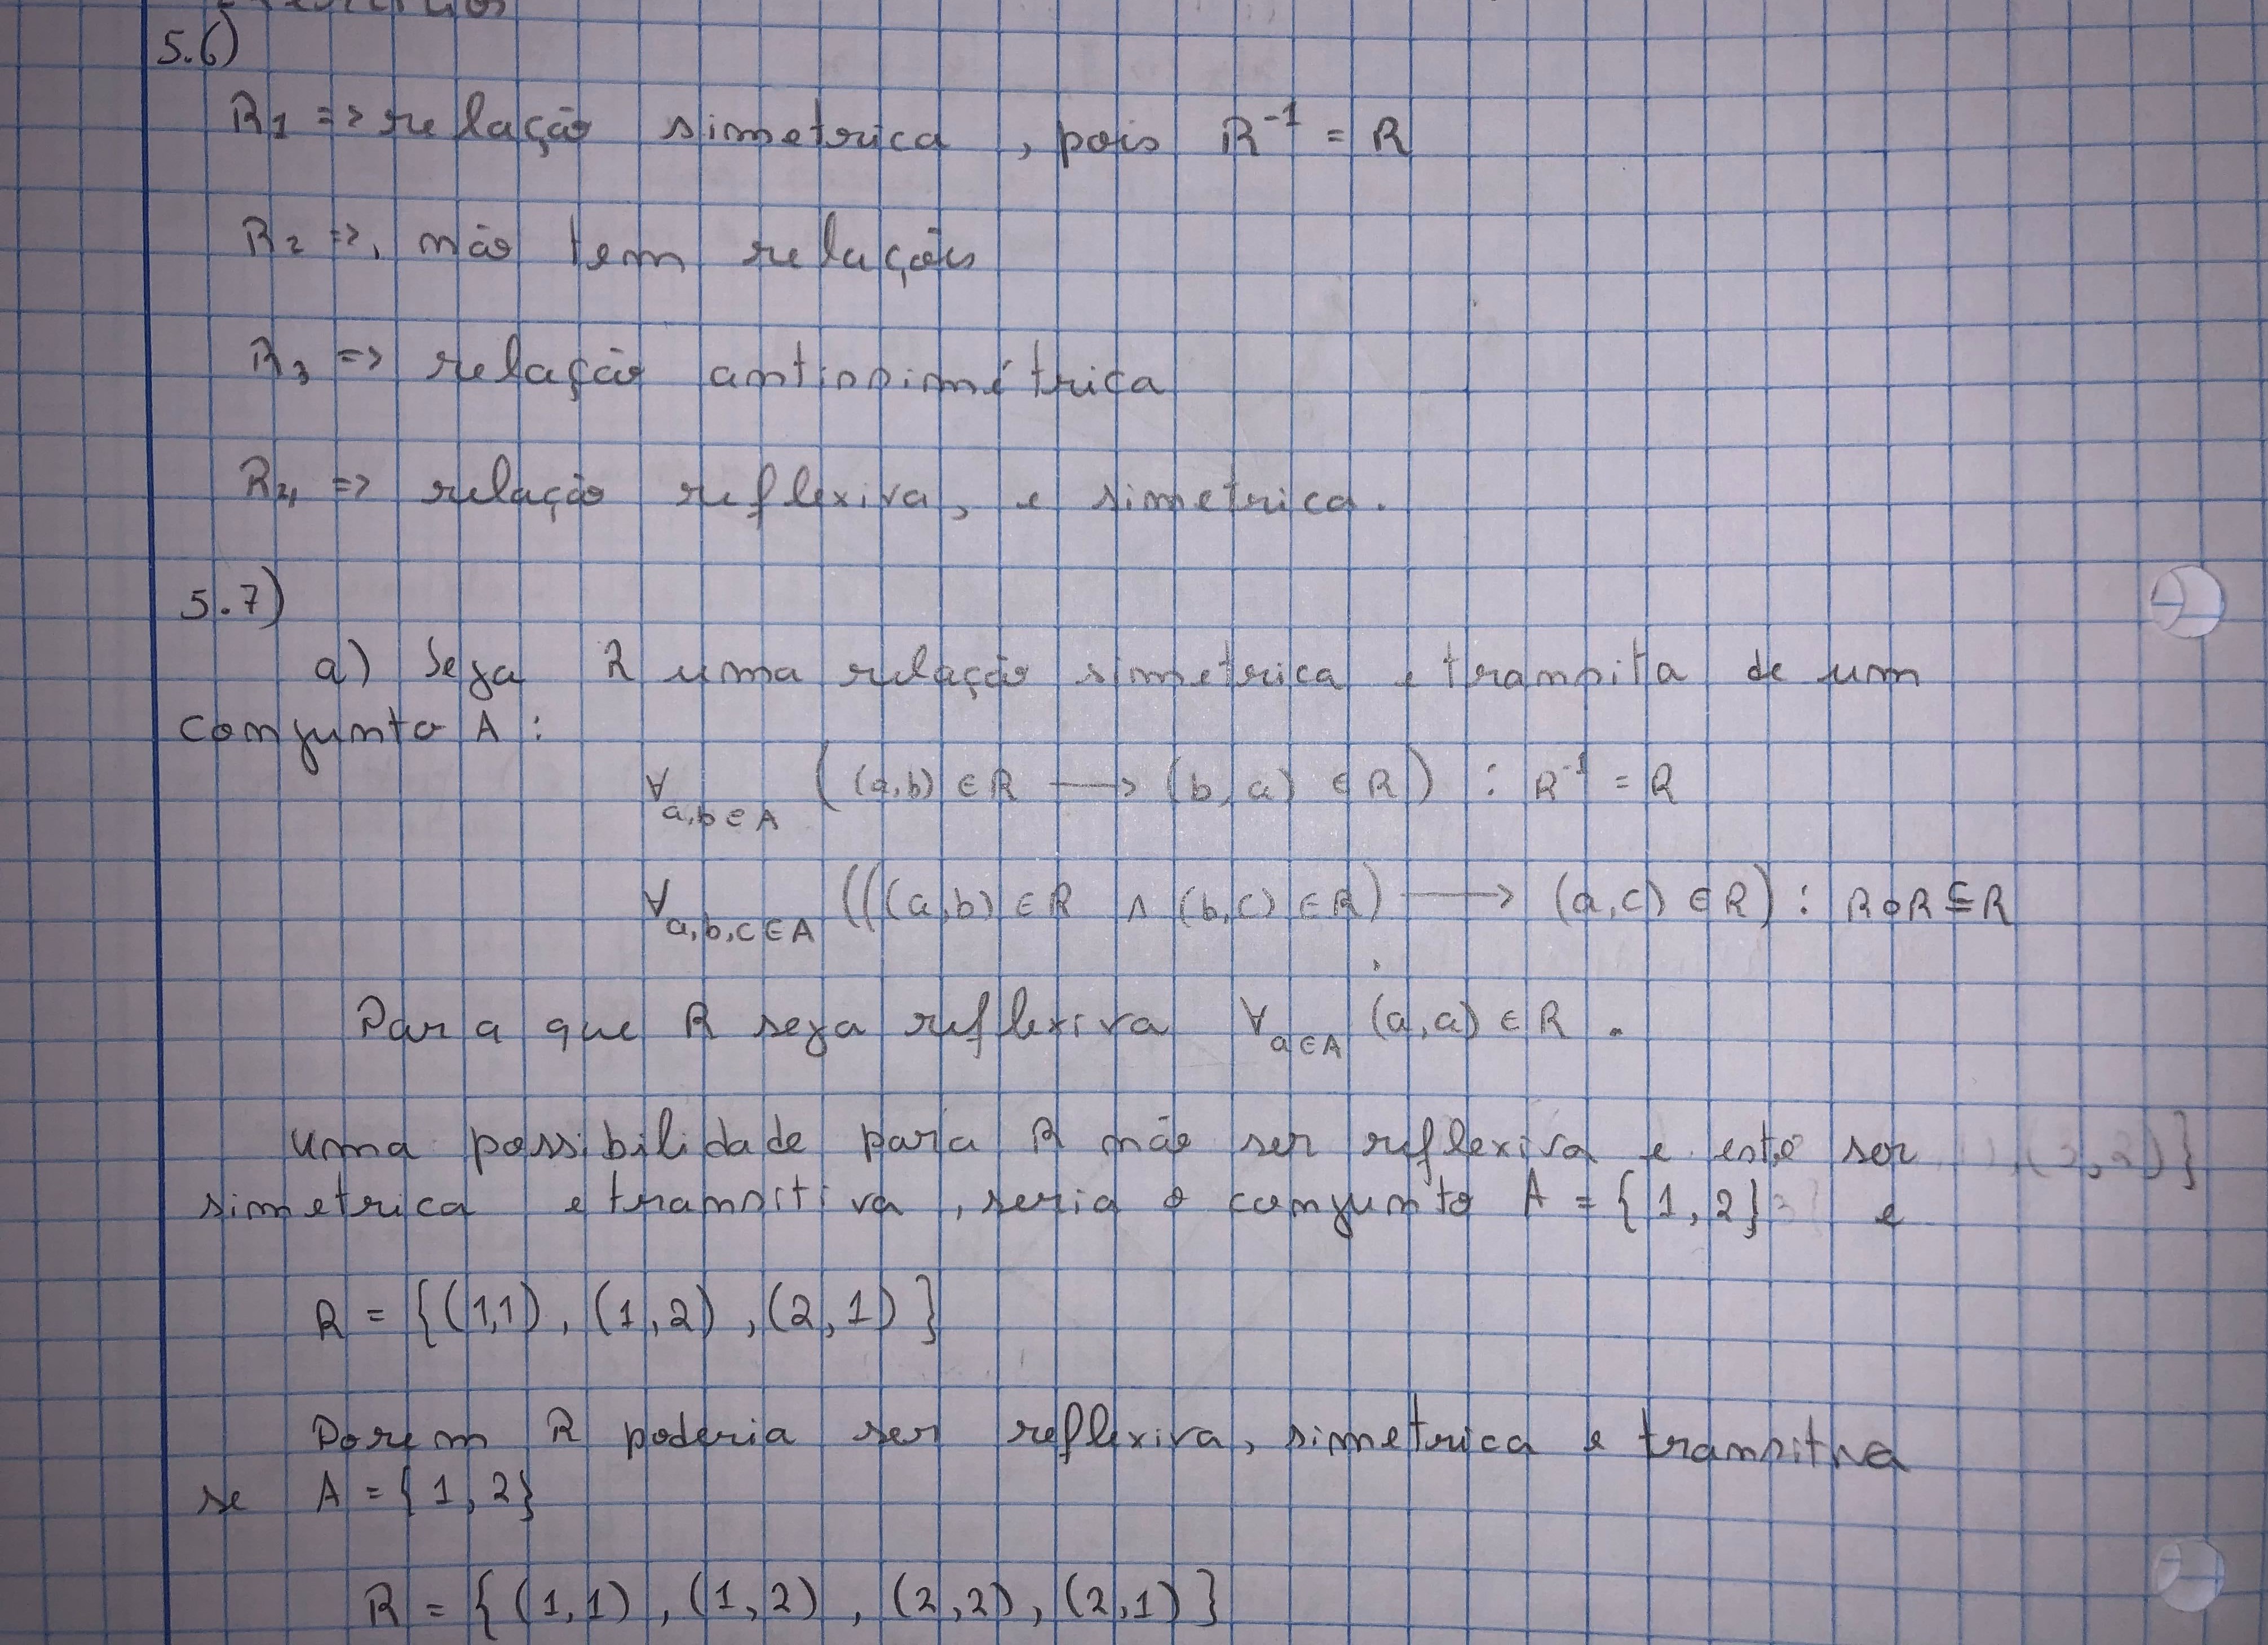 5.6)
R1 => relação simetrica, pois R⁻¹ = R
R2 => não tem relações
R3 => relação antissimétrica
R4 => relação reflexiva, e simetrica.
5.7)
a) Seja R uma relação simetrica e transita de um
conjunto A:
∀a,b∈A ((a,b) ∈ R ⟶ (b,a) ∈ R) : R⁻¹ = R
∀a,b,c∈A (((a,b) ∈ R ∧ (b,c) ∈ R) ⟶ (a,c) ∈ R) : R∘R ⊆ R
Para que R seja reflexiva ∀a∈A (a,a) ∈ R.
uma possibilidade para R não ser reflexiva e este ser
simetrica e transitiva, seria o conjunto A = {1,2} e
R = {(1,1), (1,2), (2,1)}
Porem R poderia ser reflexiva, simetrica e transitiva
se A = {1,2}
R = {(1,1), (1,2), (2,2), (2,1)}